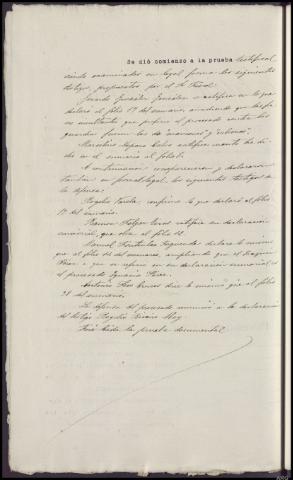 Se dió comienzo a la prueba testifical
siendo examinados en legal forma los siguientes
testigos, propuestos por el Sr. Fiscal.
Gerardo González González se ratifica en lo que
declaró al folio 17 del sumario, añadiendo que las fra-
ses insultantes que profirió el procesado contra los
guardias fueron las de "mamones" y "cabrones".
Marcelino Cobo ratifica cuanto ha di-
cho en el sumario al folio
A continuación comparecieron y declararon
tambien en forma legal los siguientes testigos de
la defensa:
Rogelio Varela, confirma lo que declaró al folio
17 del sumario.
Ramon ratifica su declaración
sumarial, que obra al folio 18.
Manuel declara lo mismo
que al folio del sumario, ampliando que el
Pérez a que se refiere en su declaración sumarial es
el procesado Ignacio Pérez.
Antonio dice lo mismo que al folio
28 del sumario.
La defensa del procesado renunció a la declaración
del testigo Rogelio Rey.
Fué leida la prueba documental.